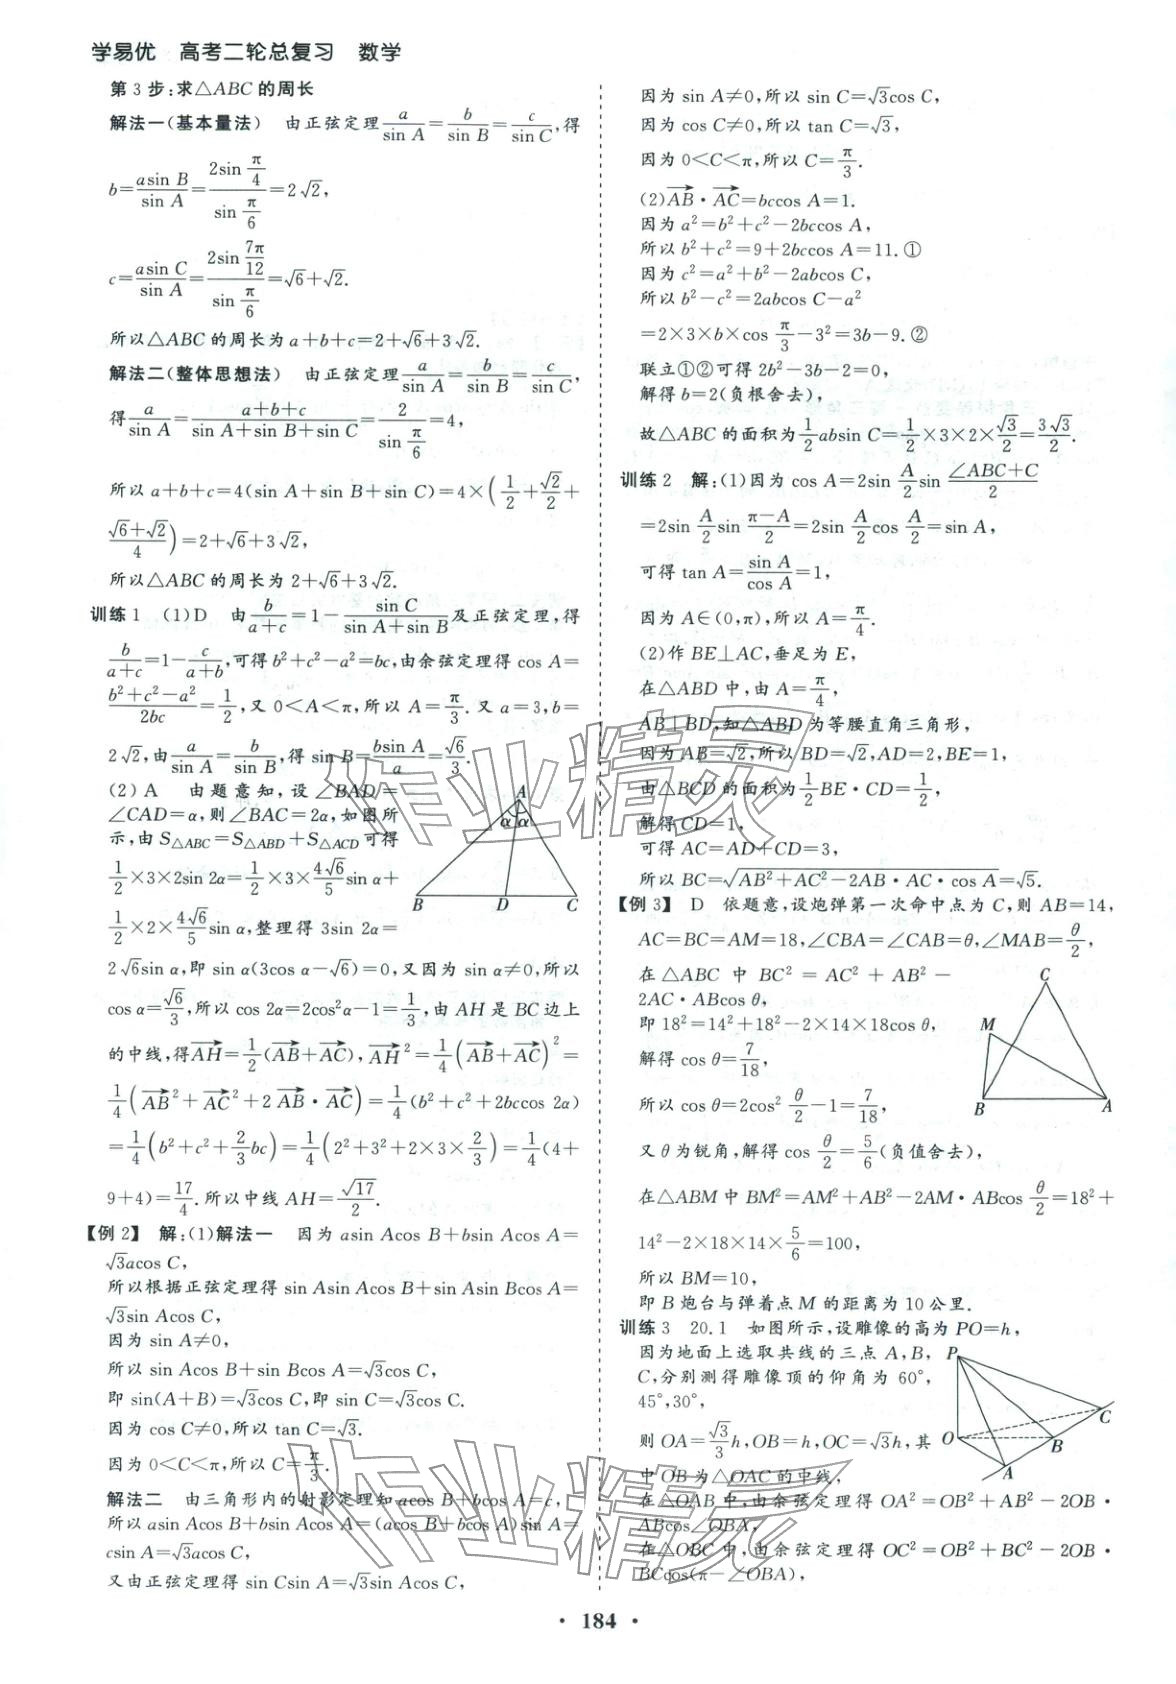 学易优 高考二轮总复习 数学
第 3 步:求△ABC 的周长
解法一(基本量法) 由正弦定理 a/sin A = b/sin B = c/sin C,得
b = asin B/sin A = (2sin π/4)/(sin π/6) = 2√2,
c = asin C/sin A = (2sin 7π/12)/(sin π/6) = √6+√2.
所以△ABC 的周长为 a+b+c=2+√6+3√2.
解法二(整体思想法) 由正弦定理 a/sin A = b/sin B = c/sin C,
得 a/sin A = (a+b+c)/(sin A+sin B+sin C) = 2/(sin π/6) = 4,
所以 a+b+c=4(sin A+sin B+sin C)=4×(1/2+√2/2+
(√6+√2)/4)=2+√6+3√2,
所以△ABC 的周长为 2+√6+3√2.
训练 1 (1)D 由 b/(a+c)=1-sin C/(sin A+sin B) 及正弦定理,得
b/(a+c)=1-c/(a+b),可得 b²+c²-a²=bc,由余弦定理得 cos A=
(b²+c²-a²)/2bc=1/2,又 0<A<π,所以 A=π/3.又 a=3,b=
2√2,由 a/sin A=b/sin B,得 sin B=bsin A/a=√6/3.
(2) A 由题意知,设∠BAD=
∠CAD=α,则∠BAC=2α,如图所
示,由 S△ABC=S△ABD+S△ACD 可得
1/2×3×2sin 2α=1/2×3×4√6/5 sin α+
1/2×2×4√6/5 sin α,整理得 3sin 2α=
2√6sin α,即 sin α(3cos α-√6)=0,又因为 sin α≠0,所以
cos α=√6/3,所以 cos 2α=2cos²α-1=1/3,由 AH 是 BC 边上
的中线,得AH→=1/2(AB→+AC→),AH→²=1/4(AB→+AC→)²=
1/4(AB→²+AC→²+2AB→·AC→)=1/4(b²+c²+2bccos 2α)
=1/4(b²+c²+2/3 bc)=1/4(2²+3²+2×3×2/3)=1/4(4+
9+4)=17/4.所以中线 AH=√17/2.
A
α α
B D C
【例 2】 解:(1)解法一 因为 asin Acos B+bsin Acos A=
√3acos C,
所以根据正弦定理得 sin Asin Acos B+sin Asin Bcos A=
√3sin Acos C,
因为 sin A≠0,
所以 sin Acos B+sin Bcos A=√3cos C,
即 sin(A+B)=√3cos C,即 sin C=√3cos C.
因为 cos C≠0,所以 tan C=√3.
因为 0<C<π,所以 C=π/3.
解法二 由三角形内的射影定理知 acos B+bcos A=c,
所以 asin Acos B+bsin Acos A=(acos B+bcos A)sin A=
csin A=√3acos C,
又由正弦定理得 sin Csin A=√3sin Acos C,
因为 sin A≠0,所以 sin C=√3cos C,
因为 cos C≠0,所以 tan C=√3,
因为 0<C<π,所以 C=π/3.
(2)AB→·AC→=bccos A=1.
因为 a²=b²+c²-2bccos A,
所以 b²+c²=9+2bccos A=11.①
因为 c²=a²+b²-2abcos C,
所以 b²-c²=2abcos C-a²
=2×3×b×cos π/3-3²=3b-9.②
联立①②可得 2b²-3b-2=0,
解得 b=2(负根舍去),
故△ABC 的面积为 1/2 absin C=1/2×3×2×√3/2=3√3/2.
训练 2 解:(1)因为 cos A=2sin A/2 sin (∠ABC+C)/2
=2sin A/2 sin (π-A)/2=2sin A/2 cos A/2=sin A,
可得 tan A=sin A/cos A=1,
因为 A∈(0,π),所以 A=π/4.
(2)作 BE⊥AC,垂足为 E,
在△ABD 中,由 A=π/4,
AB⊥BD,知△ABD 为等腰直角三角形,
因为 AB=√2,所以 BD=√2,AD=2,BE=1,
由△BCD 的面积为 1/2 BE·CD=1/2,
解得 CD=1,
可得 AC=AD+CD=3,
所以 BC=√(AB²+AC²-2AB·AC·cos A)=√5.
【例 3】 D 依题意,设炮弹第一次命中点为 C,则 AB=14,
AC=BC=AM=18,∠CBA=∠CAB=θ,∠MAB=θ/2,
在 △ABC 中 BC² = AC² + AB² -
2AC·ABcos θ,
即 18²=14²+18²-2×14×18cos θ,
解得 cos θ=7/18,
所以 cos θ=2cos² θ/2-1=7/18,
又 θ 为锐角,解得 cos θ/2=5/6(负值舍去),
在△ABM 中 BM²=AM²+AB²-2AM·ABcos θ/2=18²+
14²-2×18×14×5/6=100,
所以 BM=10,
即 B 炮台与弹着点 M 的距离为 10 公里.
C
M
B A
训练 3 20.1 如图所示,设雕像的高为 PO=h,
因为地面上选取共线的三点 A,B,
C,分别测得雕像顶的仰角为 60°,
45°,30°,
则 OA=√3/3 h,OB=h,OC=√3h,其
中 OB 为△OAC 的中线,
在△OAB 中,由余弦定理得 OA²=OB²+AB²-2OB·
ABcos∠OBA,
在△OBC 中,由余弦定理得 OC²=OB²+BC²-2OB·
BCcos(π-∠OBA),
P
C
O B
A
作业精灵
作业精灵
· 184 ·